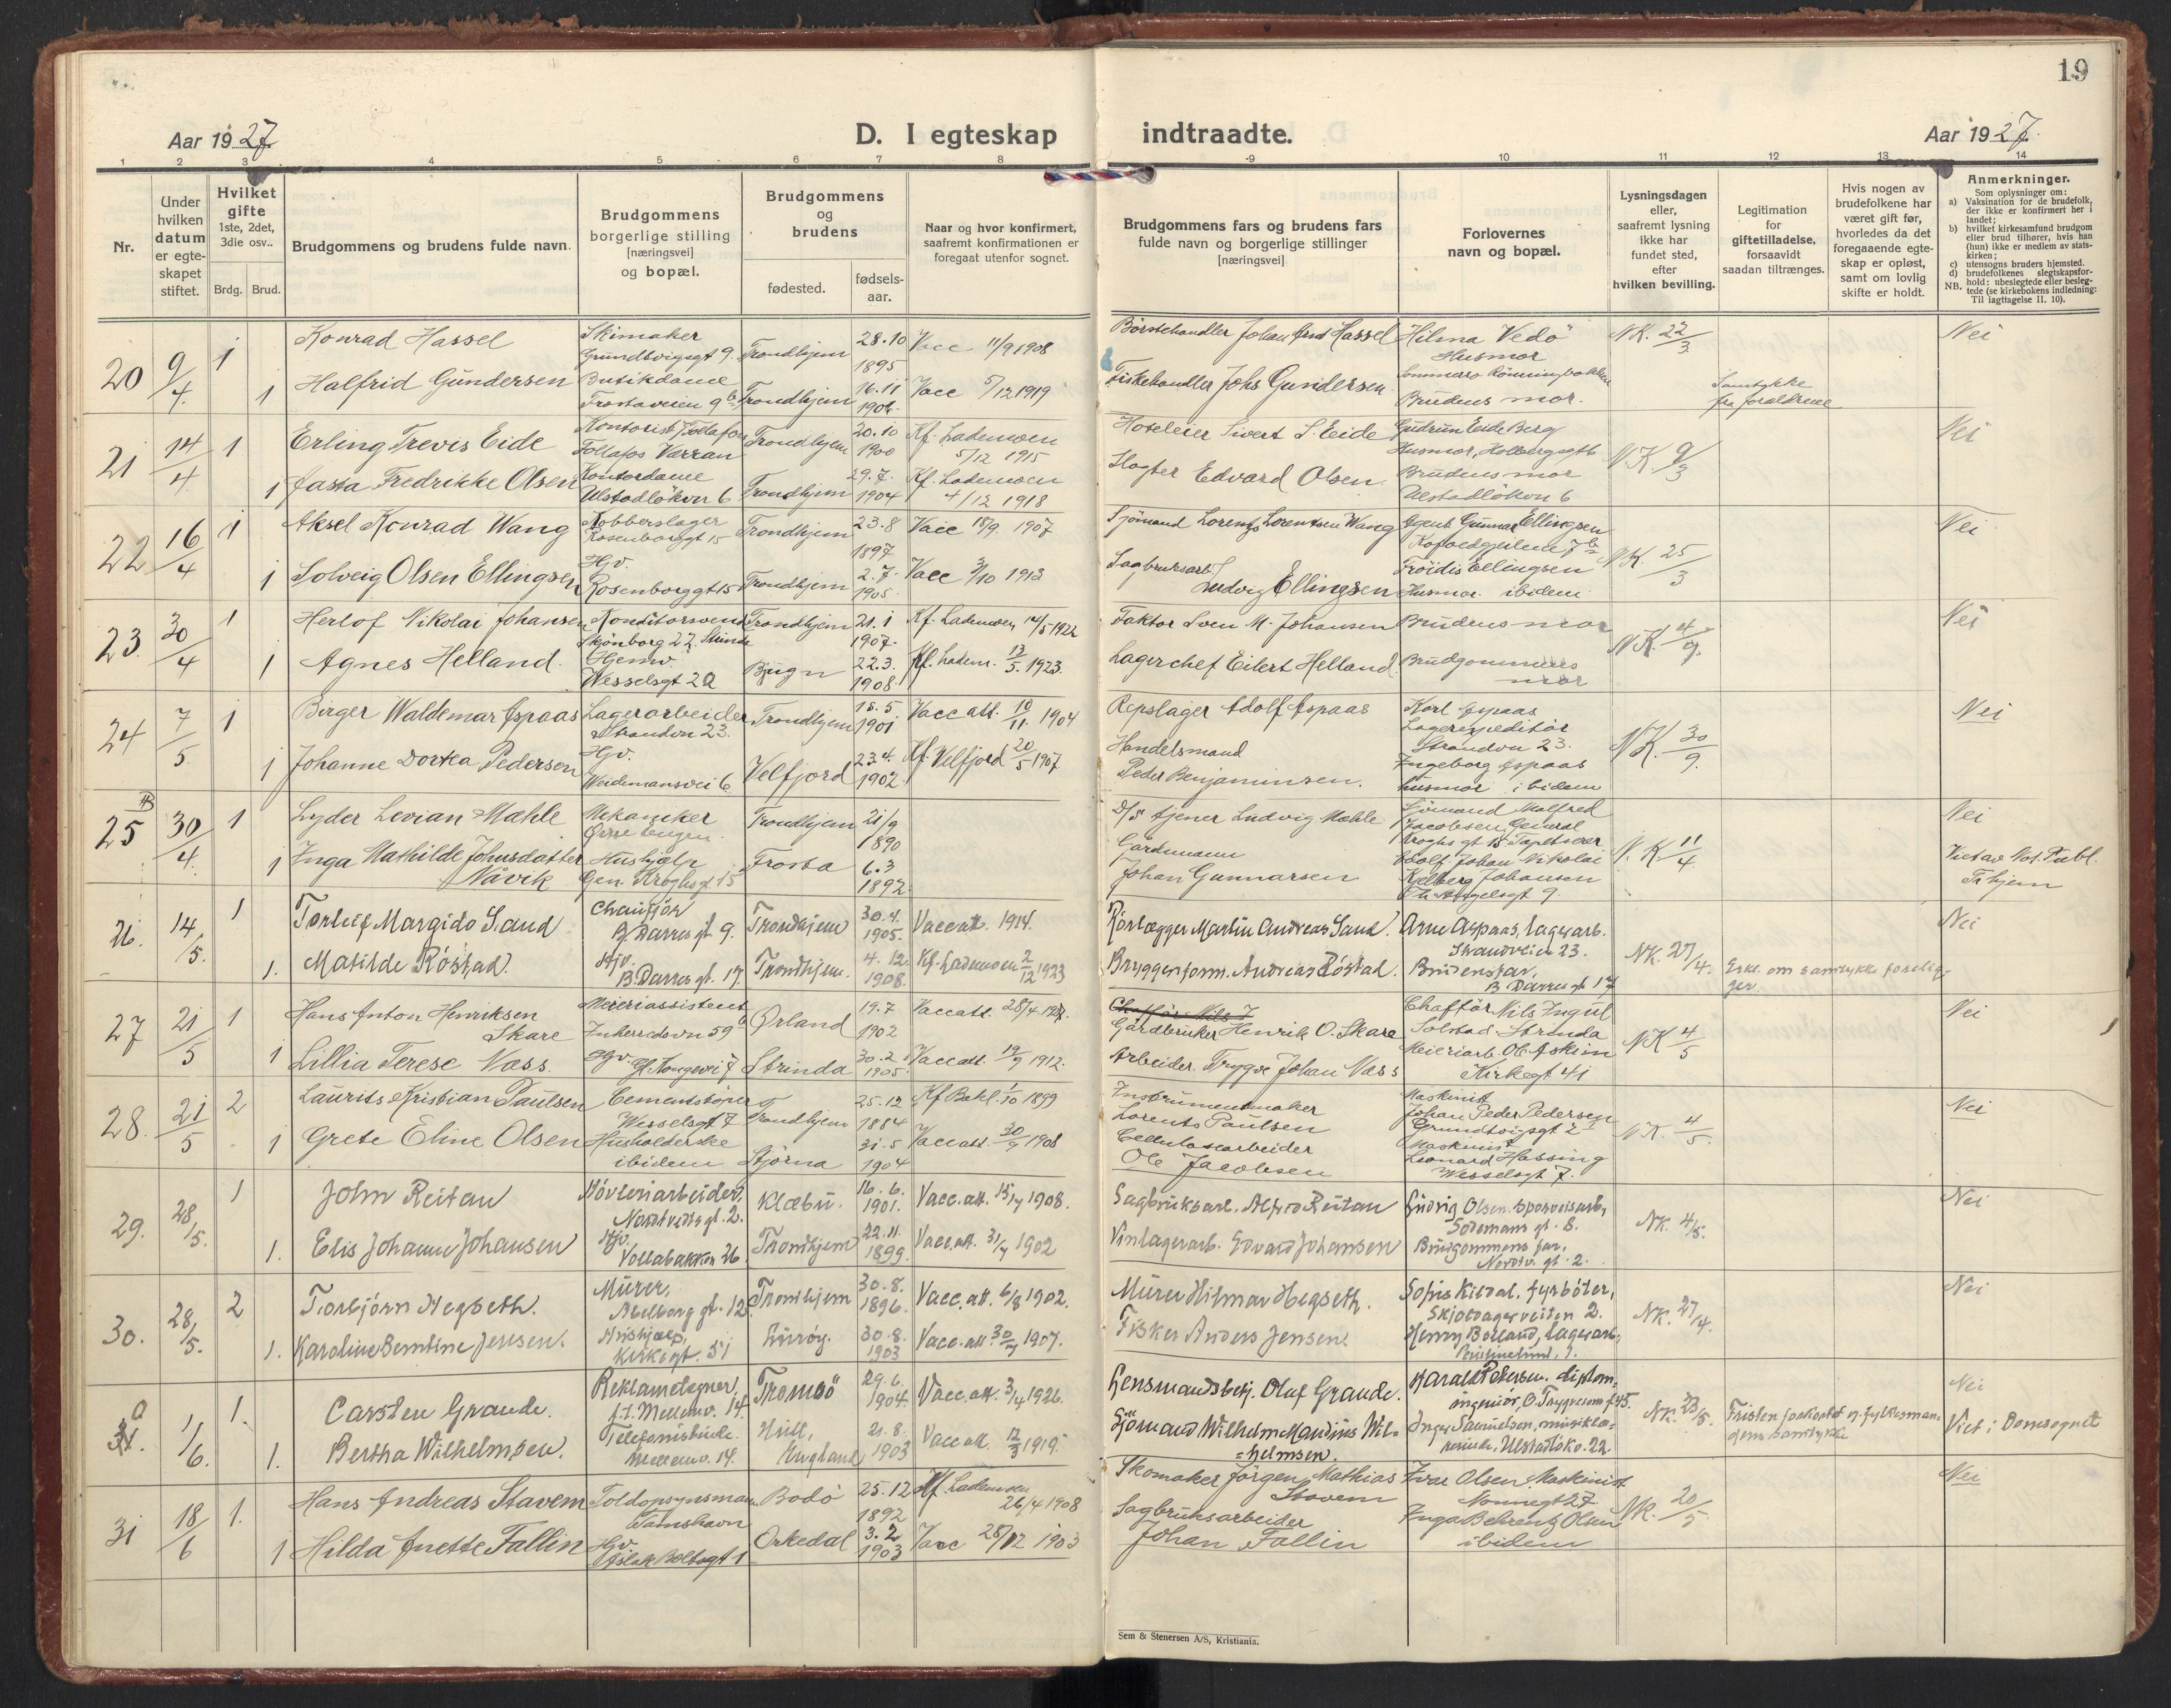 19
Aar 1927
D. I egteskap
indtraadte.
Aar 1927
1 2 3 4 5 6 7 8 9 10 11 12 13 14
Nr.
Under hvilken datum er egteskapet stiftet.
Hvilket gifte 1ste, 2det, 3die osv..
Brdg. Brud.
Brudgommens og brudens fulde navn.
Brudgommens borgerlige stilling [næringsvei] og bopæl.
Brudgommens og brudens
fødested.
fødsels-aar.
Naar og hvor konfirmert, saafremt konfirmationen er foregaat utenfor sognet.
Brudgommens fars og brudens fars fulde navn og borgerlige stillinger [næringsvei]
Forlovernes navn og bopæl.
Lysningsdagen eller, saafremt lysning ikke har fundet sted, efter hvilken bevilling.
Legitimation for giftetilladelse, forsaavidt saadan tiltrænges.
Hvis nogen av brudefolkene har været gift før, hvorledes da det foregaaende egteskap er opløst, samt om lovlig skifte er holdt.
Anmerkninger.
Som oplysninger om:
a) Vaksination for de brudefolk, der ikke er konfirmert her i landet;
b) hvilket kirkesamfund brudgom eller brud tilhører, hvis han (hun) ikke er medlem av statskirken;
c) utensogns bruders hjemsted.
d) brudefolkenes slegtskapsforhold: ubeslegtede eller beslegtede (se kirkebokens indledning: NB. Til iagttagelse II. 10).
20 9/4 1 Konrad Hassel Skimaker Grundtvigsgt 9. Trondhjem 28.10 1895 Vacc 11/9 1908 Børstehandler Johan Hassel Hilma Vedö Husmor NK. 22/3 Nei
1 Halfrid Gundersen Butikdame Frostaveien 9 b Trondhjem 16.11 Vacc 5/12 1919 Fiskehandler Johs Gundersen Brudens mor. Samtykke fra foreldrene
21 14/4 1 Erling Trevis Eide Kontorist Follafos Verran Trondhjem 20.10 1900 Kf. Lademoen 5/12 1915 Hoteleier Sivert S. Eide Gudrun Eide Berg Husmor, NK. 9/3 Nei
1 Jasta Fredrikke Olsen Kontordame Ulstadløkvn 6 Trondhjem 29.7. 1904 Kf. Lademoen 4/12 1918 Slagter Edvard Olsen. Brudens mor Ulstadløkvn 6
22 16/4 1 Aksel Konrad Wang Kobberslager Rosenborggt 15 Trondhjem 23.8 1897 Vacc 18/9. 1907 Sjömand Lorents Lorentsen Wang Agent Gunnar Ellingsen NK. 25/3 Nei
1 Solveig Olsen Ellingsen Hjv. Rosenborggt 15 Trondhjem 2.7. 1905. Vacc 3/10 1913 Sagbruksarb. Ludvig Ellingsen Frøidis Ellingsen Husmor. ibidem
23 30/4 1 Herlof Nikolai Johansen Konditorsvend Skönborg 22 Strinda Trondhjem 21.1 1907. Kf. Lademoen 14/5 1922 Faktor Sven M. Johansen Brudens mor NK. 4/9. Nei
1 Agnes Helland. Hjemv. Wesselsgt 22 Bjugn 22.3. 1908. Kf. Ladem. 13/5. 1923. Lagerchef Eilert Helland. Brudgommens mor
24 7/5 1 Birger Waldemar Aspaas Lagerarbeider Strandvn 23. Trondhjem 18.5 1901 Vacc att. 10/11. 1904 Repslager Adolf Aspaas Karl Aspaas Lagerexpeditör Strandvn 23. NK. 30/9. Nei
1 Johanne Dorka Pedersen Hjv. Weidemansvei 6 Velfjord 23.4. 1902 Kf. Velfjord 20/5 1907 Handelsmand Peder Benjaminsen. Ingeborg Aspaas husmor ibidem
25 30/4. 1 Lyder Levian Mæhle Mekaniker Trondhjem 21/9 1890 D/S tjener Ludvig Mæhle Sjömand Malfred Jacobsen General Kroghs gt 15 Tapetserer N. K 11/4 Nei
1 Inga Mathilde Johnsdatter Nåvik Hushjælp Gen. Kroghsgt. 15 Frosta 6.3 1892. Gardmann Johan Gunnarsen Adolf Johan Nikolai Kjelberg Johansen Th. Angelsgt 9. Viet av Not. Publ. Tr.hjem
26. 14/5. 1 Torleif Margido Sand Chauffør B. Darres gt 9. Trondhjem 30.4. 1905. Vacc att. 1914. Rørlægger Martin Andreas Sand. Arne Aspaas, lagerarb. Strandveien 23. NK. 27/4. Nei
1. Matilde Röstad. Hjv. B. Darres gt. 17. Trondhjem. 4.12 1908. Kf. Lademoen 2/12 1923 Bryggeriform. Andreas Röstad. Brudens far, B. Darres gt 17 Erkl. om samtykke forelig- ger.
27 21/5 1 Hans Anton Henriksen Skare Meieriassistent Inherredsvn 59 b Ørland 19.7 1902 Vacc att. 28/4. 1927. Gårdbruker Henrik O. Skare Chafför Nils Ingul Solstad Strinda NK 4/5 Nei
1 Lillia Terese Næss. Hjv. Strinda 30.2 1905. Vacc att. 19/9 1912. Arbeider Trygve Johan Næss Meieriarb. Ole Askim Kirkegt 41
28. 21/5 2 Laurits Kristian Paulsen Cementstöper Wesselsgt 7 Trondhjem 25.12 1884 Kf Bakl. 1/10 1899 Instrumentmaker Lorents Paulsen Maskinist Johan Peder Pedersen NK. 4/5. Nei
1 Grete Eline Olsen Husholderske ibidem Stjørna 31.5 1904 Vacc att. 30/9 1908 Cellulosearbeider Ole Jacobsen Maskinist Leonard Hassing Wesselsgt 7.
29. 28/5. 1 John Reitan Høvleriarbeider, Nordtvedts gt. 2. Klæbu. 16.6. 1901. Vacc. att. 15/4 1908. Sagbruksarb. Alfred Reitan Ludvig Olsen. Sporveisarb., Sodemans gt. 8. NK. 4/5. Nei
1. Elis Johanne Johansen Hjv. Vollabakken 26. Trondhjem 22.11. 1899. Vacc. att. 31/4 1902 Vinlagerarb. Edvard Johansen Brudgommens far, Nordtv. gt. 2.
30. 28/5. 2 Torbjörn Hegseth. Murer, Abelsborg gt. 12. Trondhjem 30.8. 1896. Vacc. att. 6/8 1902. Murer Hilmar Hegseth. fyrbøter, Skjoldagerveiten 2. NK. 27/4. Nei
1. Karoline Berntine Jensen. Hushjælp, Kirkegt. 51 Lurøy. 30.8. 1903 Vacc. att. 30/7 1907. Fisker Anders Jensen. Henry Borland, lagerarb.,
1/6. 1. Carsten Grande. Reklametegner, Mellemv. 14. Tromsö 29.6. 1904. Vacc. att. 3/4 1926. Lensmandsbetj. Oluf Grande. Harald Petersen, diplom- ingeniör, O. Trygvasons gt 45. NK. 23/5. Fristen forkortet Nei
1. Bertha Wilhelmsen. Telefonistinde. Mellemv. 14. Hull, England 21.8. 1903 Vacc att. 12/3 1919. Sjömand Wilhelm Maudius Wil- =helmsen. Inger Samuelsen, musiklæ- rerinde, Ulstadløkv. 22. Viet i Domsognet
31 18/6 1. Hans Andreas Stavem Toldopsynsmann Namshavn Bodö 25.12 1892 Kf. Lademoen 26/4 1908 Skomaker Jörgen Mathias Stavem Ivar Olsen, Maskinist Nonnegt 27 NK. 20/5 Nei
1 Hilda Anette Fallin Hjv. Aslak Boltsgt 1 Orkedal 3.2 1903 Vacc 28/12 1903 Sagbruksarbeider Johan Fallin Inga Behrentz Olsen ibidem
Sem & Stenersen A/S, Kristiania.